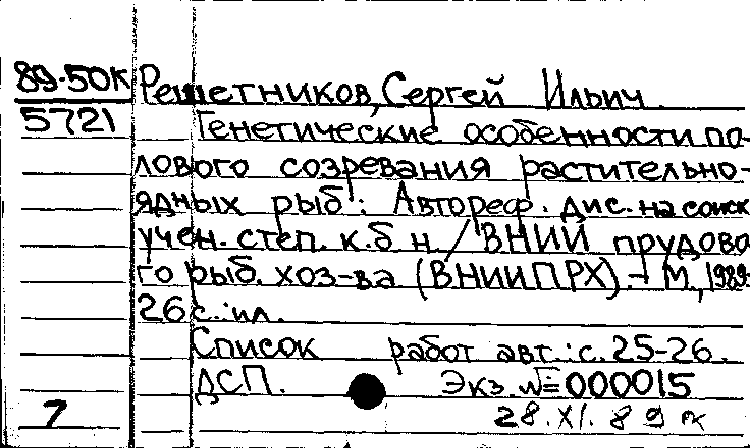 89-50К Решетников, Сергей Ильич.
5721 Генетические особенности по-
лового созревания растительно-
ядных рыб : Автореф. дис. на соиск
учен. степ. к.б н. / ВНИИ прудово
го рыб. хоз-ва (ВНИИПРХ). - М., 1989.
26 с. : ил.
Список работ авт. : с. 25-26.
ДСП. Экз. №=000015
7 28.XI.89